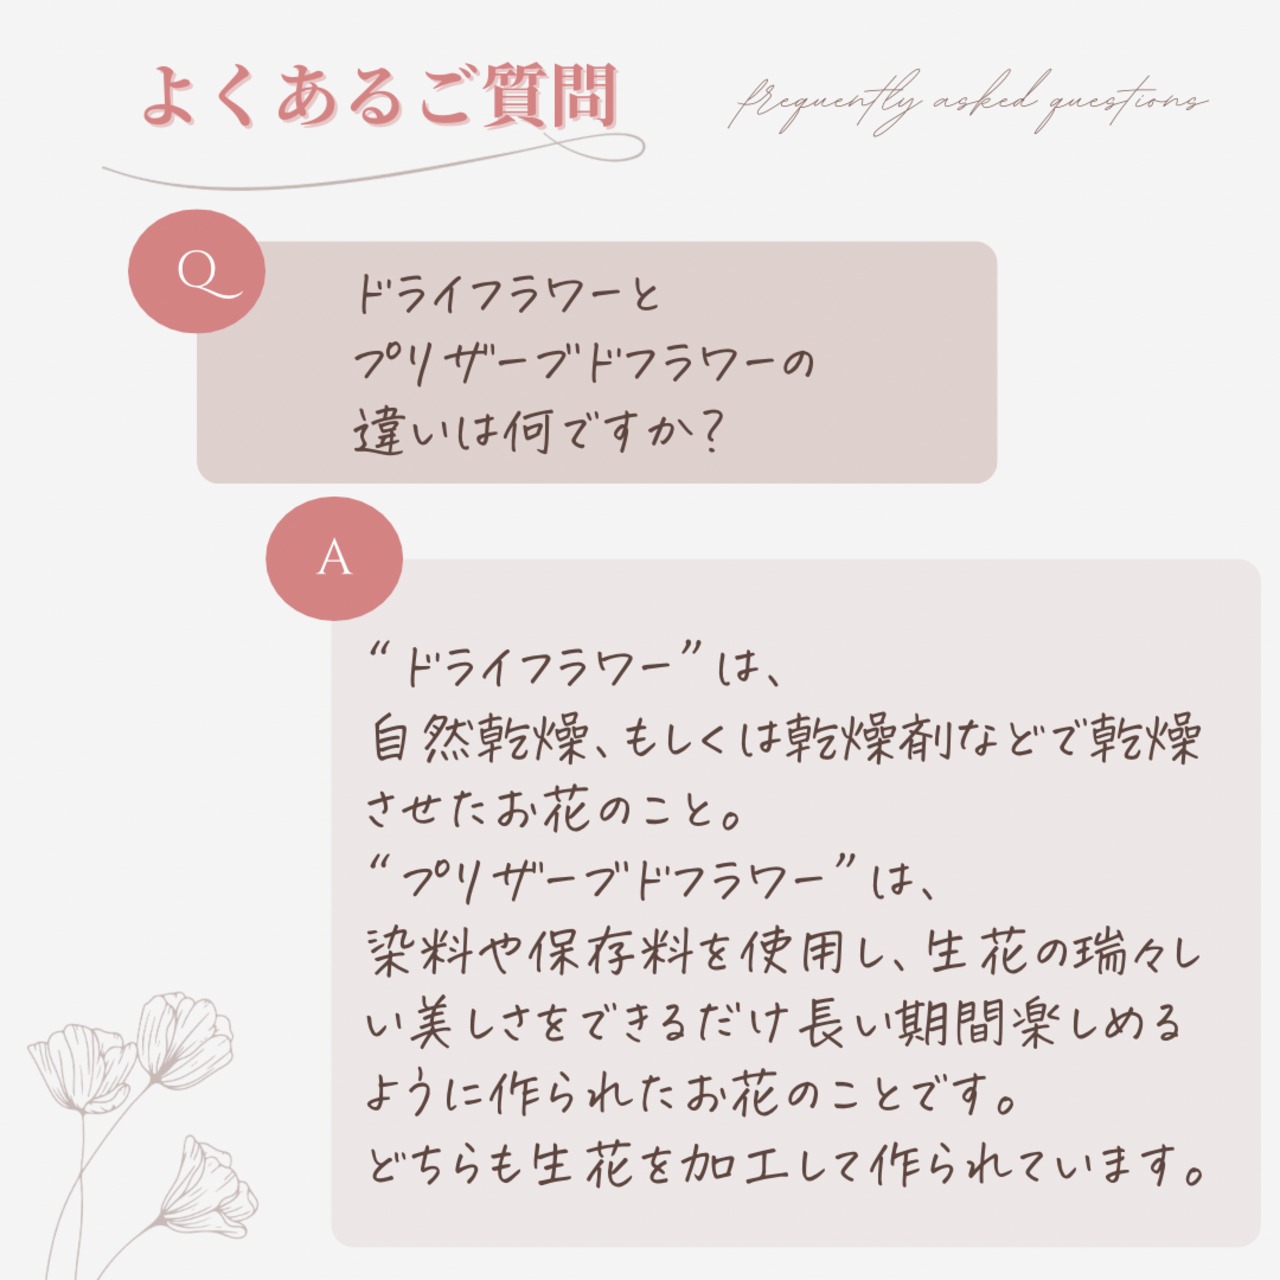 よくあるご質問
frequently asked questions
Q
ドライフラワーと
プリザーブドフラワーの
違いは何ですか？
A
“ドライフラワー”は、
自然乾燥、もしくは乾燥剤などで乾燥
させたお花のこと。
“プリザーブドフラワー”は、
染料や保存料を使用し、生花の瑞々し
い美しさをできるだけ長い期間楽しめる
ように作られたお花のことです。
どちらも生花を加工して作られています。